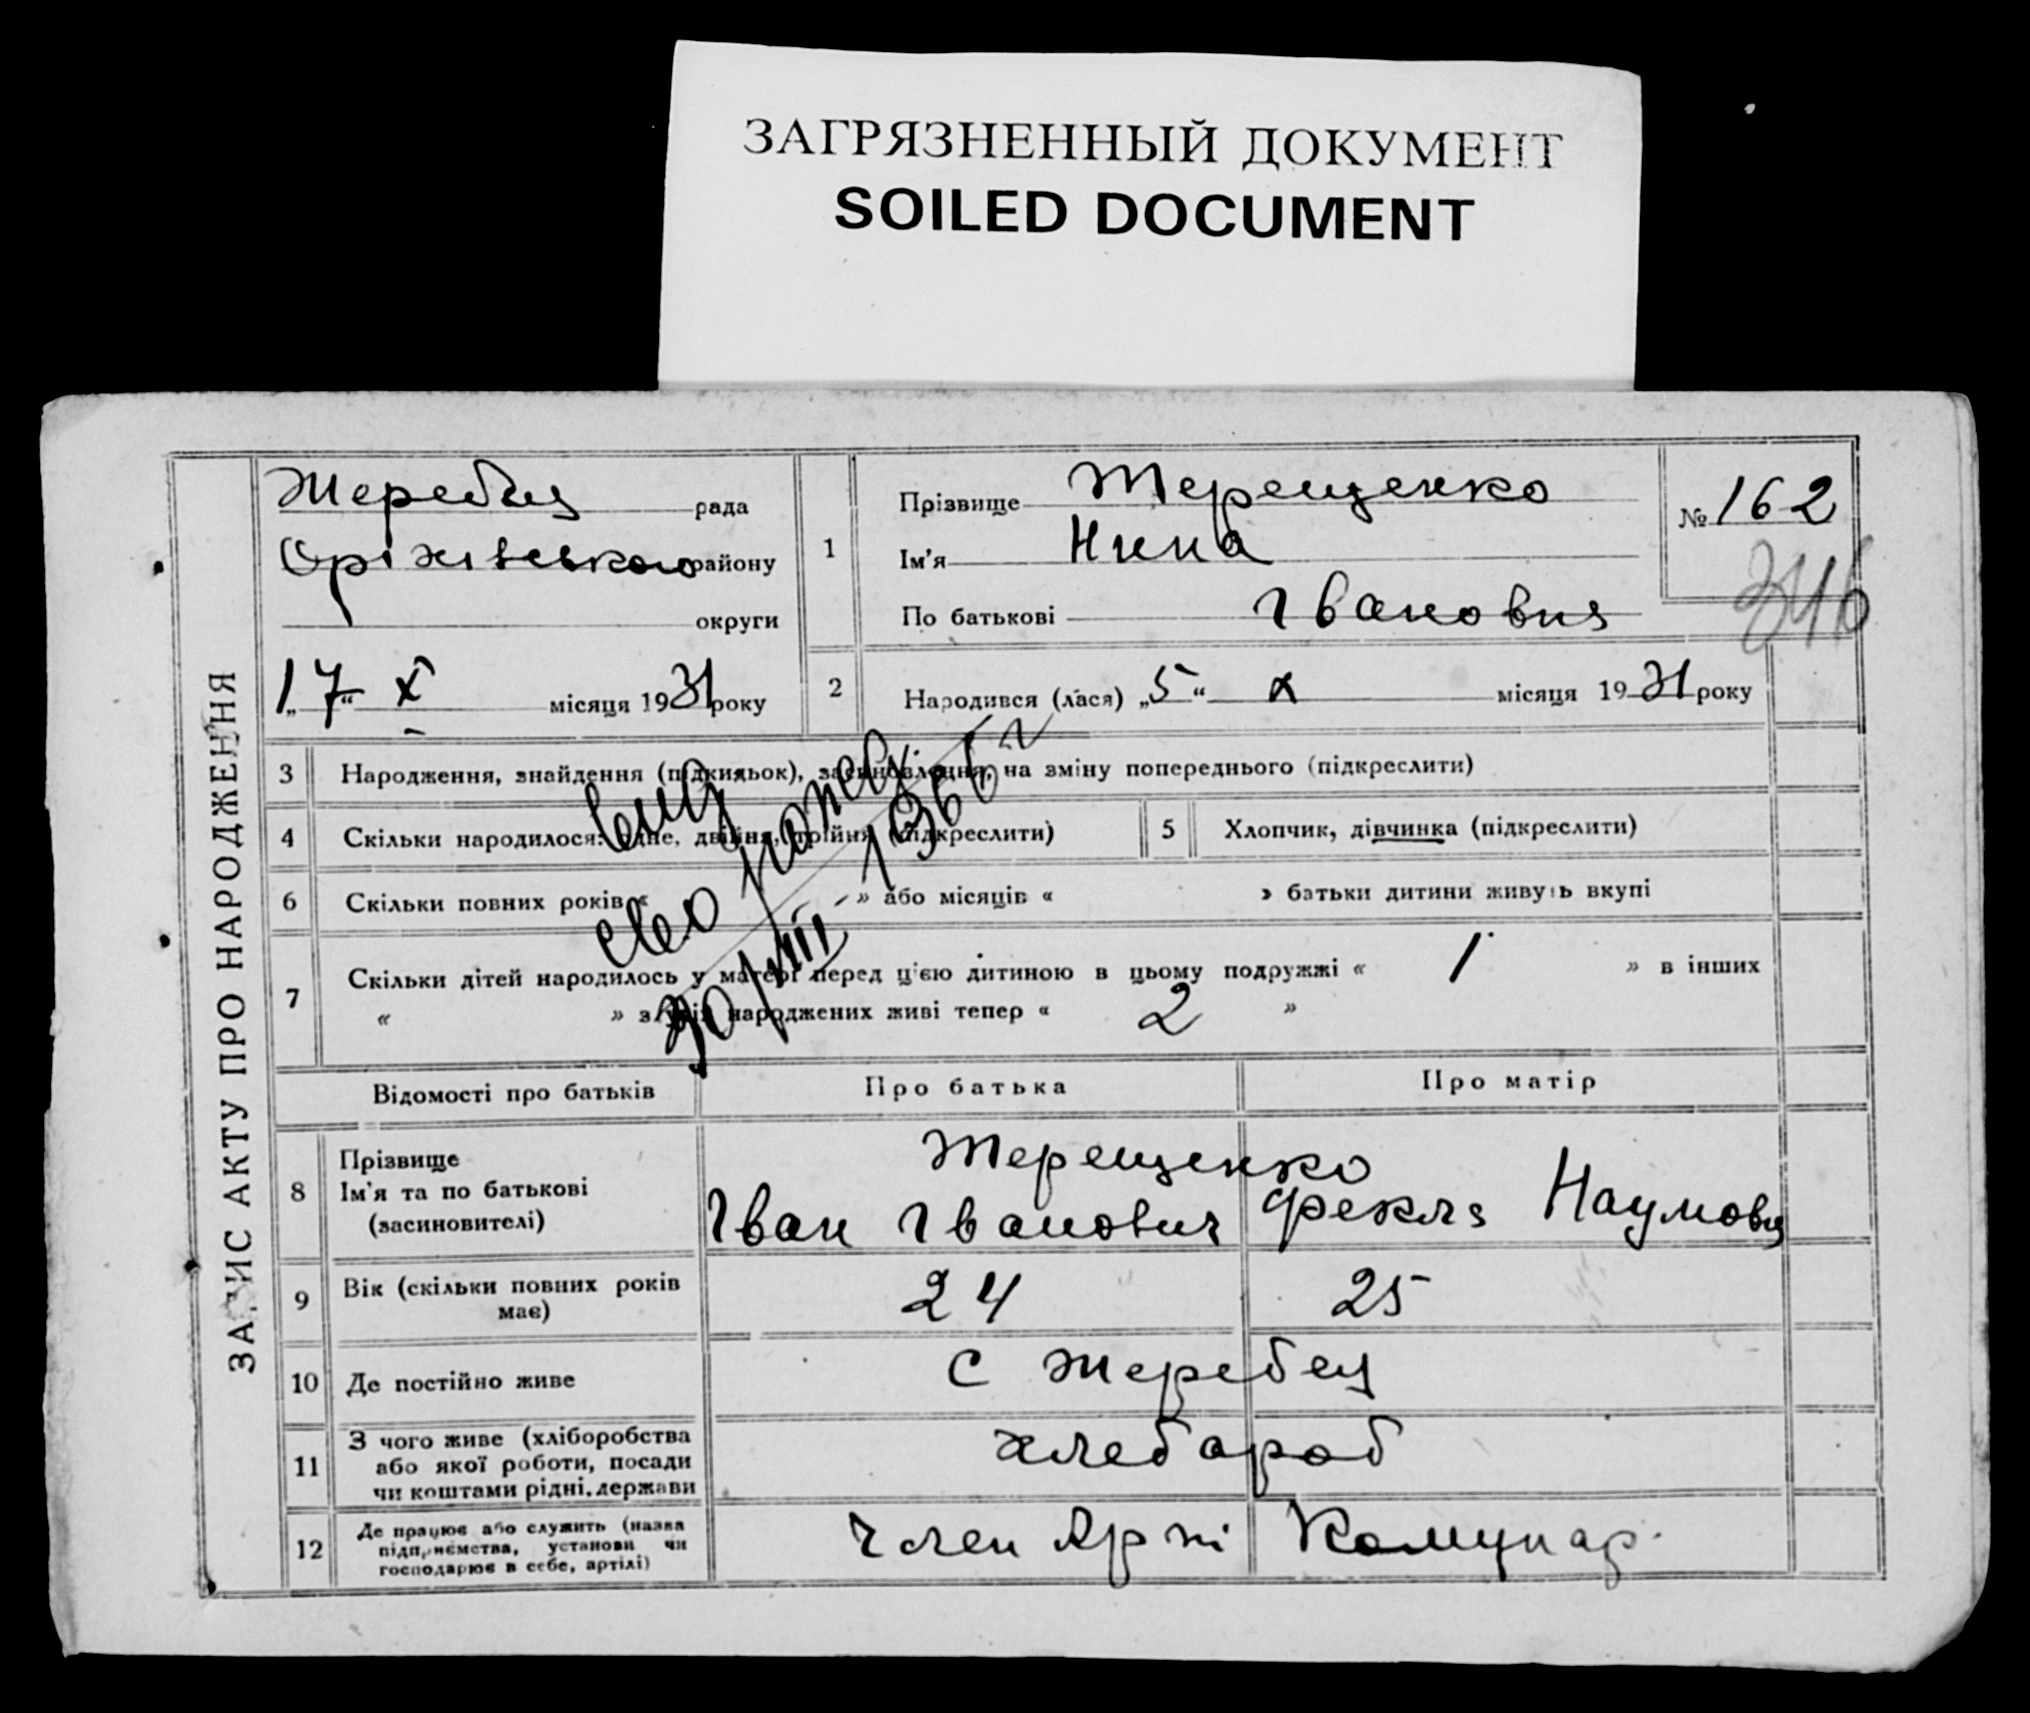 ЗАГРЯЗНЕННЫЙ ДОКУМЕНТ
SOILED DOCUMENT
ЗАПИС АКТУ ПРО НАРОДЖЕННЯ
Жеребец рада
Оріхівського району
округи
„17“ X місяця 1931 року
1 Прізвище Терещенко
Ім'я Нина
По батькові Івановня
№ 162
316
2 Народився (лася) „5“ X місяця 1931 року
3 Народження, знайдення (підкидьок), засиновлення, на зміну попереднього (підкреслити)
4 Скільки народилося: одне, двійня, трійня (підкреслити)
5 Хлопчик, дівчинка (підкреслити)
6 Скільки повних років « » або місяців « » батьки дитини живуть вкупі
7 Скільки дітей народилось у матері перед ц'єю дитиною в цьому подружжі « 1 » в інших
« » з усіх народжених живі тепер « 2 »
30/VIII 1966 г
Відомості про батьків Про батька Про матір
8 Прізвище
Ім'я та по батькові
(засиновителі)
Терещенко
Іван Іванович Фекля Наумовн
9 Вік (скільки повних років має) 24 25
10 Де постійно живе с Жеребец
11 З чого живе (хліборобства
або якої роботи, посади
чи коштами рідні, держави
хлебароб
12 Де працює або служить (назва
підприємства, установи чи
господарює в себе, артілі)
Член Арті Комунар.